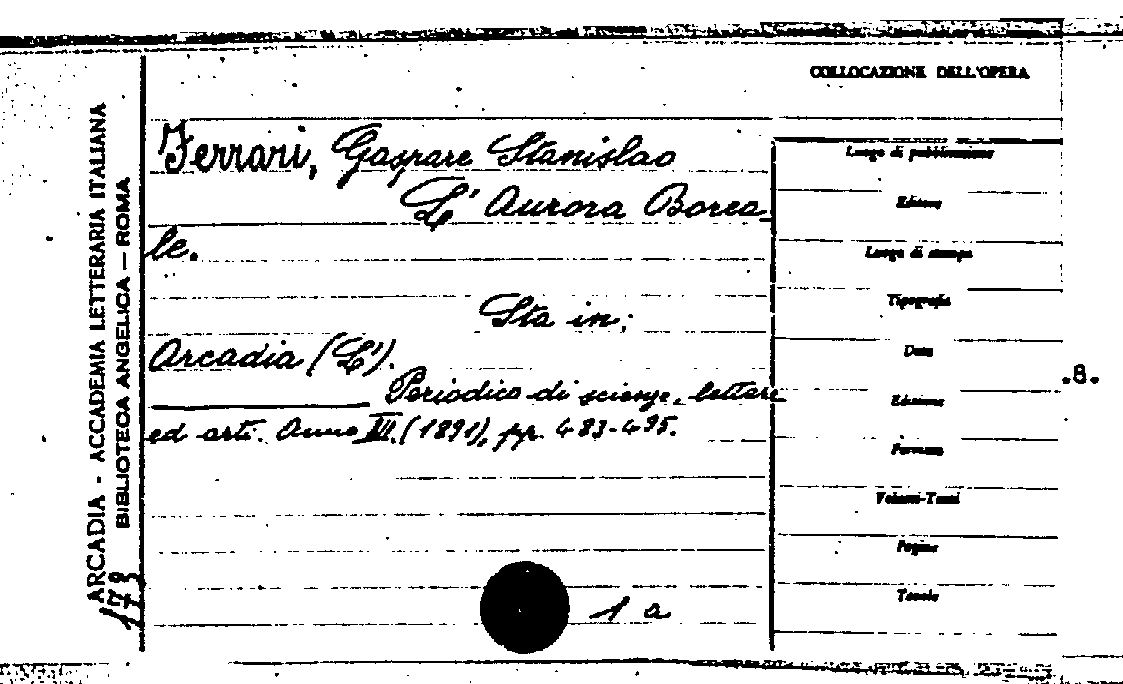 COLLOCAZIONE DELL'OPERA
Ferrari, Gaspare Stanislao
L' Aurora Borea-
le.
Sta in:
Arcadia (L').
Periodico di scienze, lettere
ed arti. Anno III. (1891), pp. 483-495.
1 a
ARCADIA - ACCADEMIA LETTERARIA ITALIANA
BIBLIOTECA ANGELICA — ROMA
Luogo di pubblicazione
Edizione
Luogo di stampa
Tipografia
Data
Edizione
Formato
Volumi-Tomi
Pagine
Tavole
.8.